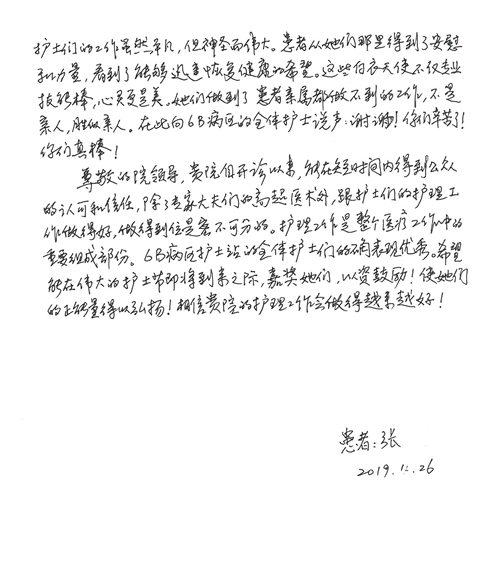 护士们的工作虽然平凡，但神圣而伟大。患者从她们那里得到了安慰
和力量，看到了能够迅速恢复健康的希望。这些白衣天使不仅专业
技能棒，心灵更是美。她们做到了患者亲属都做不到的工作，不是
亲人，胜似亲人。在此向6B病区的全体护士说声：谢谢！你们辛苦了！
你们真棒！
尊敬的院领导，贵院自开诊以来，能在短时间内得到公众
的认可和信任，除了专家大夫们的高超医术外，跟护士们的护理工
作做得好，做得到位是密不可分的。护理工作是整个医疗工作中的
重要组成部份。6B病区护士站的全体护士们的表现优秀。希望
能在伟大的护士节即将到来之际，嘉奖她们，以资鼓励！使她们
的正能量得以弘扬！相信贵院的护理工作会做得越来越好！
患者：张
2019.12.26